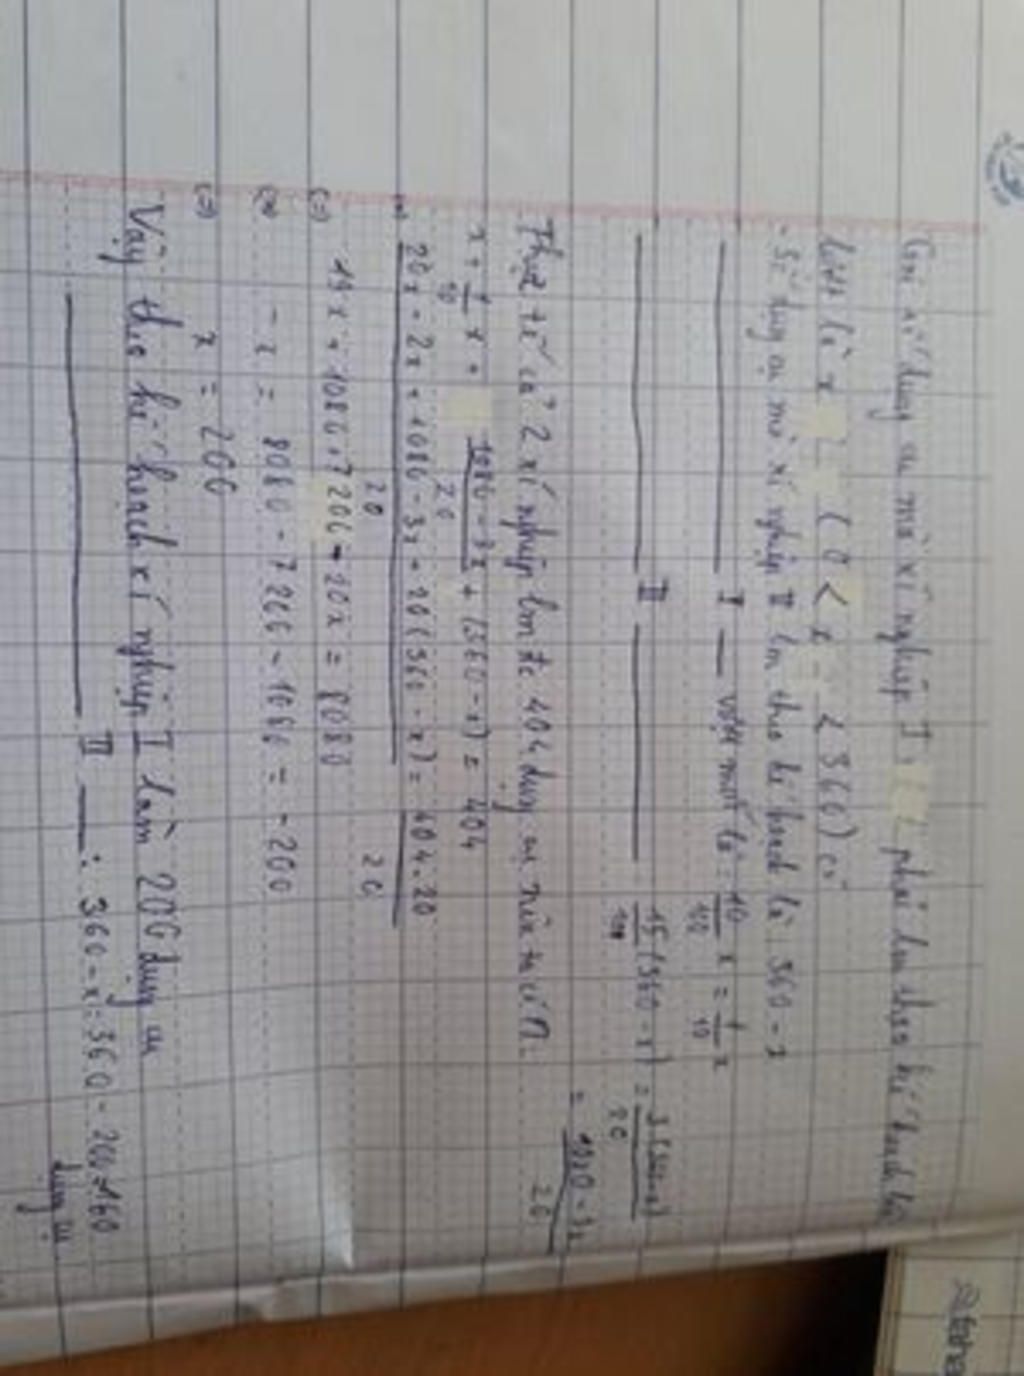 Gọi số dụng cụ mà xí nghiệp I phải làm theo kế hoạch là
là x ( 0 < x < 360) cí
- Số dụng cụ mà xí nghiệp II làm theo kế hoạch là : 360 - x
I vượt mức là : 10/100 x = 1/10 x
II 15/100 (360 - x) = 3(360-x)/20
= 1080 - 3x/20
Thực tế cả 2 xí nghiệp làm đc 404 dụng cụ
x + 1/10 x + 1080 - 3x/20 + (360 - x) = 404
20x + 2x + 1080 - 3x + 20(360 - x) = 404.20
20 20
(=) 19x + 1080 + 7200 - 20x = 8080
(=) - x = 8080 - 7200 - 1080 = -200
(=) x = 200
Vậy theo kế hoạch xí nghiệp I làm 200 dụng cụ
II : 360 - x = 360 - 200 = 160
dụng cụ